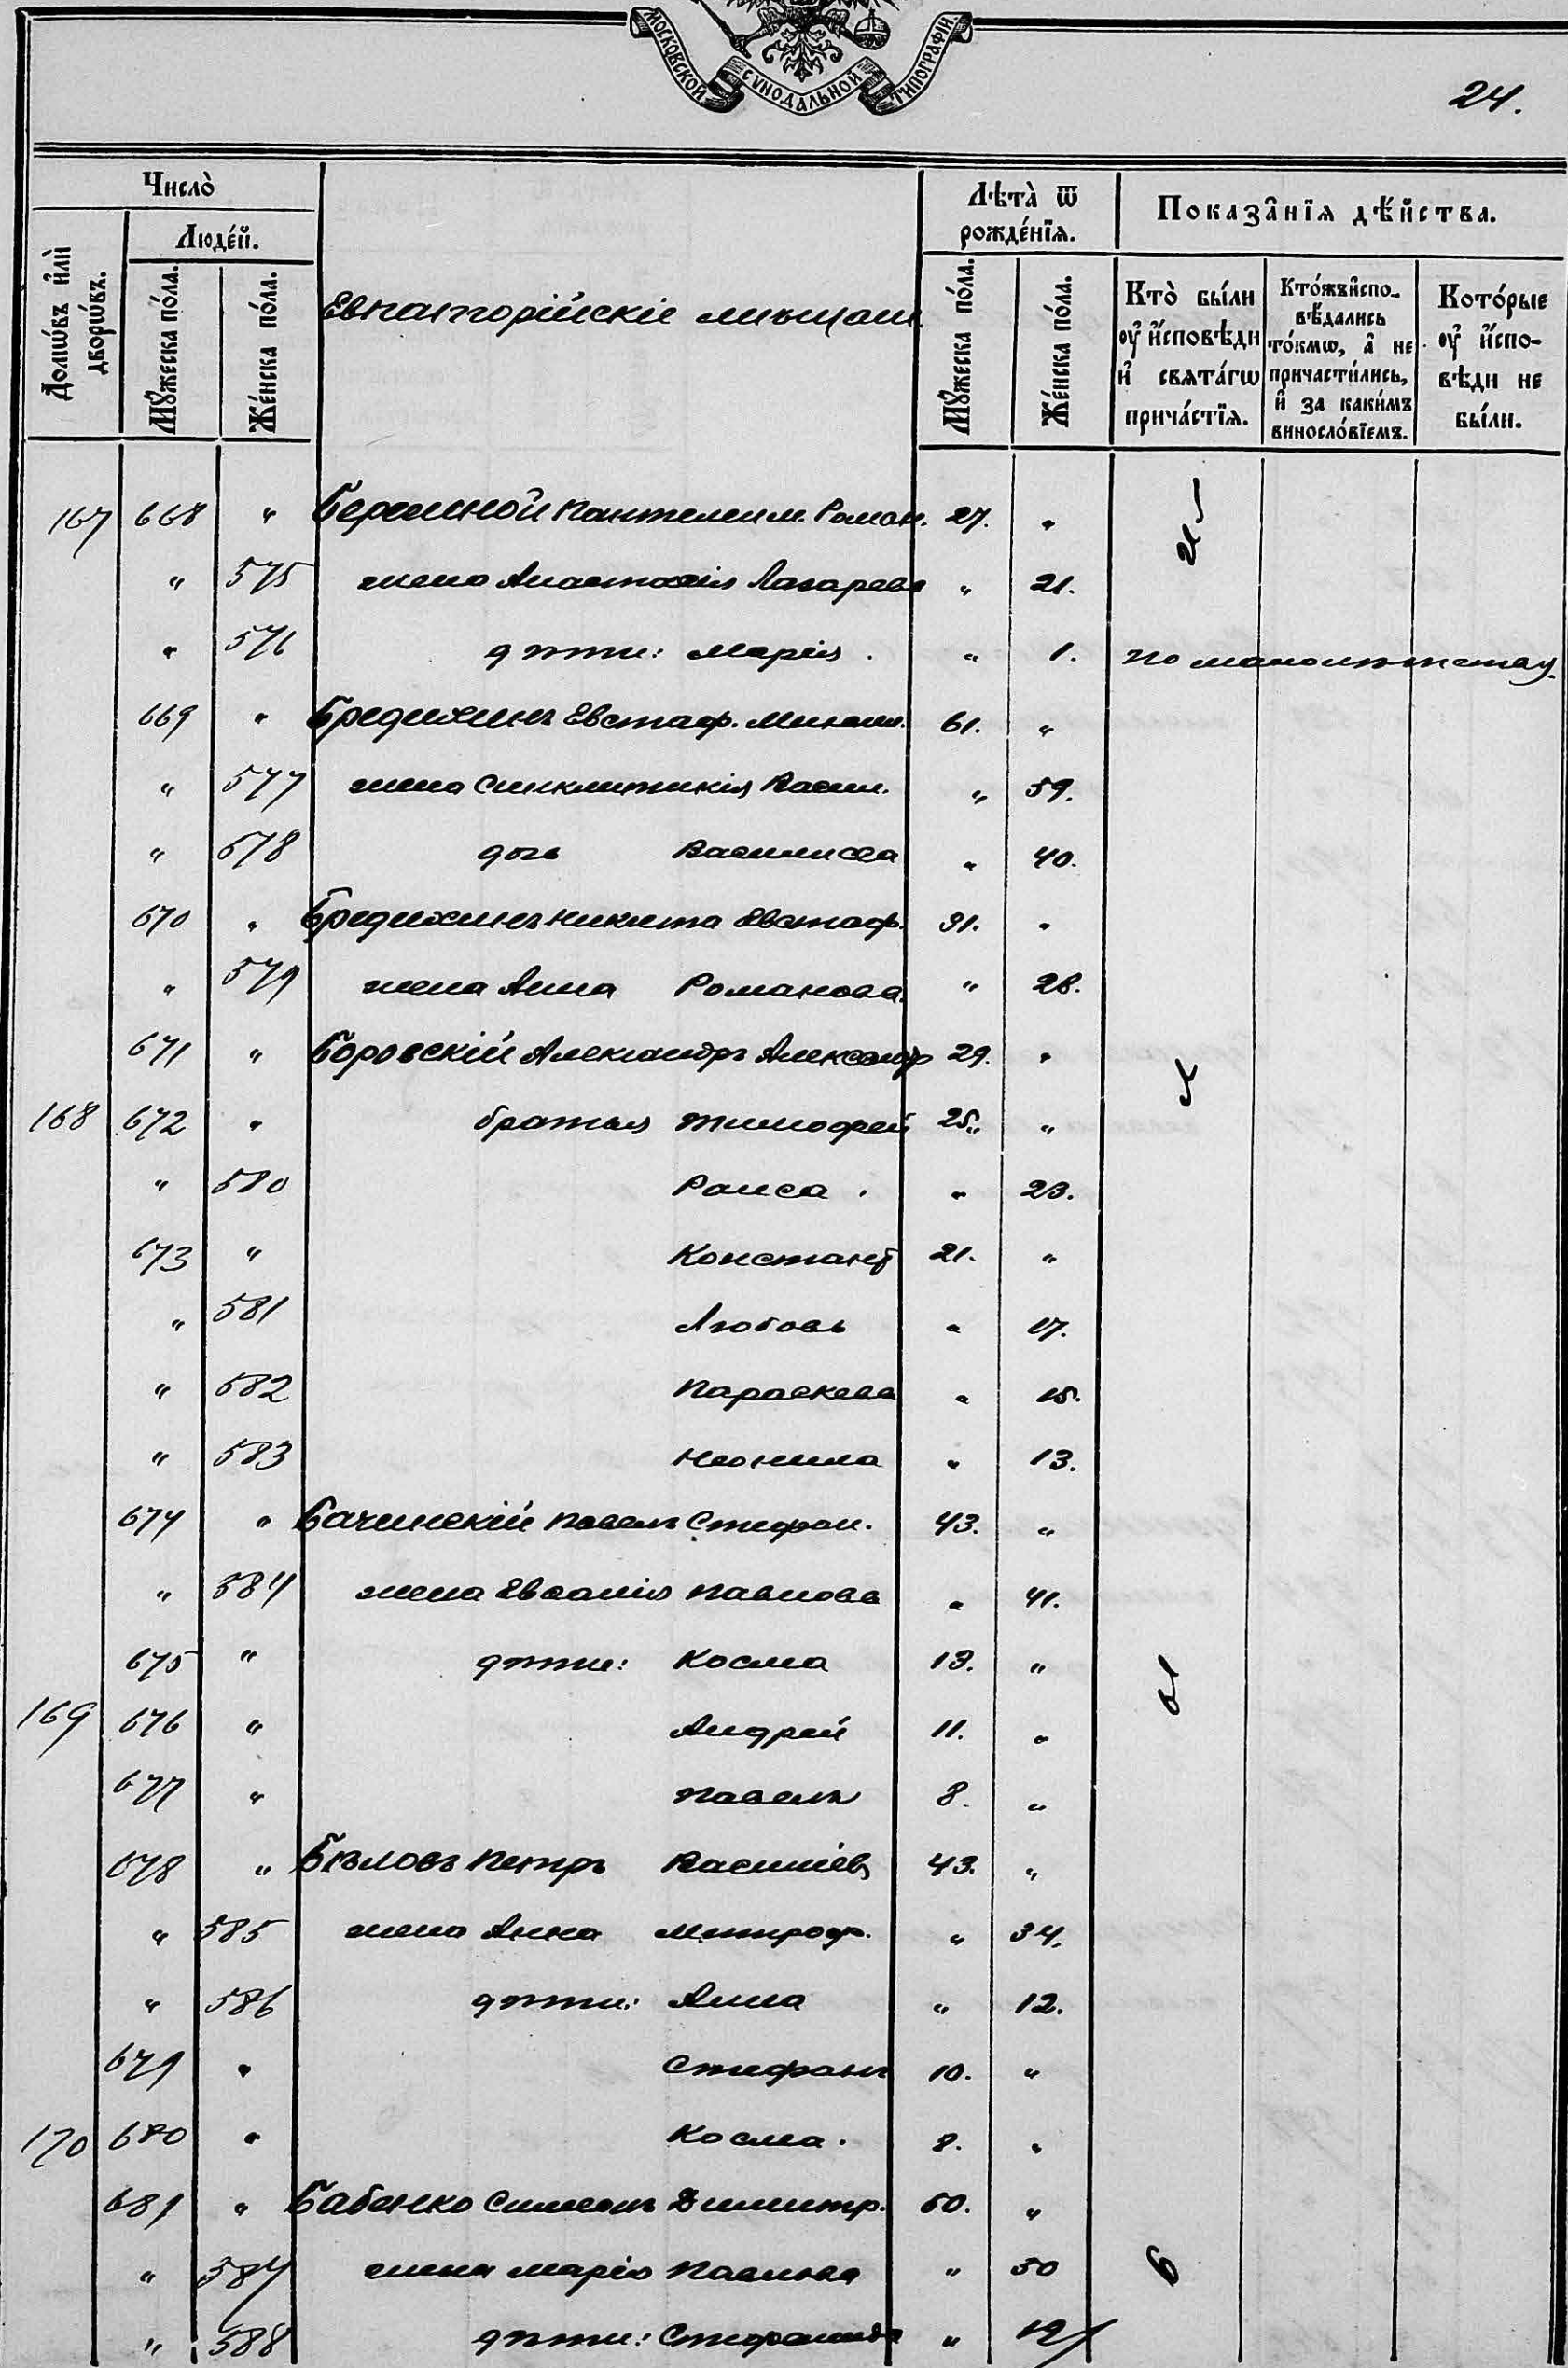 МОСКОВСКОЙ СѴНОДАЛЬНОЙ ТИПОГРАФІИ.
24.
Число̀
Домѡ́въ и҆лѝ дворѡ́въ.
Люде́й.
Мꙋ́жеска по́ла.
Же́нска по́ла.
Евпаторійскіе мѣщан.
Лѣта̀ ѿ рожде́нїѧ.
Мꙋ́жеска по́ла.
Же́нска по́ла.
Показа̑нїѧ дѣ́йства.
Кто̀ бы́ли оу҆ и҆́сповѣди и҆ свѧта́гѡ прича́стїѧ.
Кто́жъ и҆сповѣ́дались то́кмѡ, а҆ не причасти́лись, и҆ за каки́мъ винослові́емъ.
Кото́рые оу҆ и҆́сповѣди не бы́ли.
167 668 " Пантелеим. Роман. 27. "
" 575 жена Анастасія Лазарева " 21.
" 576 дѣти: Марія. " 1. по малолѣтству.
669 " Бредихинъ Евстаф. Михаил. 61. "
" 577 жена Синклитикія Васил. " 59.
" 578 дочь Василисса " 40.
670 " Бредихинъ Никита Евстаф. 31. "
" 579 жена Анна Романова. " 28.
671 " Боровскій Александръ Александр 29. "
168 672 " братья Тимофей 25. "
" 580 Раиса. " 23.
673 " Констант 21. "
" 581 Любовь " 17.
" 582 Параскева " 15.
" 583 Неонила " 13.
674 " Бачинскій Павелъ Стефан. 43. "
" 584 жена Павлова " 41.
675 " дѣти: Косма 13. "
169 676 " Андрей 11. "
677 " Павелъ 8. "
678 " Бѣловъ Петръ Василіев 43. "
" 585 жена Анна Митроф. " 34.
" 586 дѣти: Анна " 12.
679 " Стефанъ 10. "
170 680 " Косма. 8. "
681 " Бабенко Симеонъ Димитр. 50. "
" 587 жена Марія Павлова " 50
" 588 дѣти: Стефанида " 12